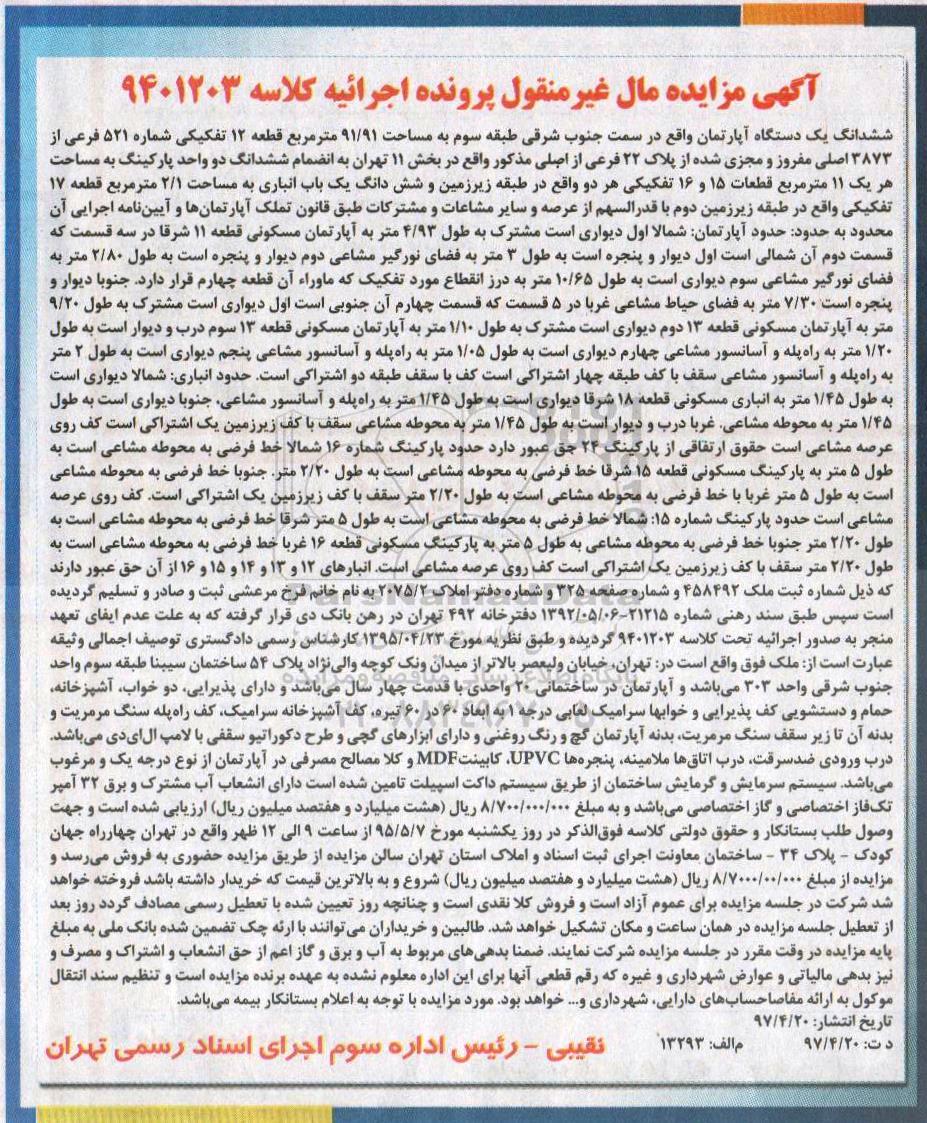 آگهی مزایده مال غیرمنقول پرونده اجرائیه کلاسه ۹۴۰۱۲۰۳
ششدانگ یک دستگاه آپارتمان واقع در سمت جنوب شرقی طبقه سوم به مساحت ۹۱/۹۱ مترمربع قطعه ۱۲ تفکیکی شماره ۵۲۱ فرعی از
۳۸۷۳ اصلی مفروز و مجزی شده از پلاک ۲۲ فرعی از اصلی مذکور واقع در بخش ۱۱ تهران به انضمام ششدانگ دو واحد پارکینگ به مساحت
هر یک ۱۱ مترمربع قطعات ۱۵ و ۱۶ تفکیکی هر دو واقع در طبقه زیرزمین و شش دانگ یک باب انباری به مساحت ۲/۱ مترمربع قطعه ۱۷
تفکیکی واقع در طبقه زیرزمین دوم با قدرالسهم از عرصه و سایر مشاعات و مشترکات طبق قانون تملک آپارتمان‌ها و آیین‌نامه اجرایی آن
محدود به حدود: حدود آپارتمان: شمالا اول دیواری است مشترک به طول ۴/۹۳ متر به آپارتمان مسکونی قطعه ۱۱ شرقا در سه قسمت که
قسمت دوم آن شمالی است اول دیوار و پنجره است به طول ۳ متر به فضای نورگیر مشاعی دوم دیوار و پنجره است به طول ۲/۸۰ متر به
فضای نورگیر مشاعی سوم دیواری است به طول ۱۰/۶۵ متر به درز انقطاع مورد تفکیک که ماوراء آن قطعه چهارم قرار دارد. جنوبا دیوار و
پنجره است ۷/۳۰ متر به فضای حیاط مشاعی غربا در ۵ قسمت که قسمت چهارم آن جنوبی است اول دیواری است مشترک به طول ۹/۲۰
متر به آپارتمان مسکونی قطعه ۱۳ دوم دیواری است مشترک به طول ۱/۱۰ متر به آپارتمان مسکونی قطعه ۱۳ سوم درب و دیوار است به طول
۱/۲۰ متر به راه‌پله و آسانسور مشاعی چهارم دیواری است به طول ۱/۰۵ متر به راه‌پله و آسانسور مشاعی پنجم دیواری است به طول ۲ متر
به راه‌پله و آسانسور مشاعی سقف با کف طبقه چهار اشتراکی است کف با سقف طبقه دو اشتراکی است. حدود انباری: شمالا دیواری است
به طول ۱/۴۵ متر به انباری مسکونی قطعه ۱۸ شرقا دیواری است به طول ۱/۴۵ متر به راه‌پله و آسانسور مشاعی، جنوبا دیواری است به طول
۱/۴۵ متر به محوطه مشاعی. غربا درب و دیوار است به طول ۱/۴۵ متر به محوطه مشاعی سقف با کف زیرزمین یک اشتراکی است کف روی
عرصه مشاعی است حقوق ارتفاقی از پارکینگ ۲۴ حق عبور دارد حدود پارکینگ شماره ۱۶ شمالا خط فرضی به محوطه مشاعی است به
طول ۵ متر به پارکینگ مسکونی قطعه ۱۵ شرقا خط فرضی به محوطه مشاعی است به طول ۲/۲۰ متر. جنوبا خط فرضی به محوطه مشاعی
است به طول ۵ متر غربا با خط فرضی به محوطه مشاعی است به طول ۲/۲۰ متر سقف با کف زیرزمین یک اشتراکی است. کف روی عرصه
مشاعی است حدود پارکینگ شماره ۱۵: شمالا خط فرضی به محوطه مشاعی است به طول ۵ متر شرقا خط فرضی به محوطه مشاعی است به
طول ۲/۲۰ متر جنوبا خط فرضی به محوطه مشاعی به طول ۵ متر به پارکینگ مسکونی قطعه ۱۶ غربا خط فرضی به محوطه مشاعی است به
طول ۲/۲۰ متر سقف با کف زیرزمین یک اشتراکی است کف روی عرصه مشاعی است. انبارهای ۱۲ و ۱۳ و ۱۴ و ۱۵ و ۱۶ از آن حق عبور دارند
که ذیل شماره ثبت ملک ۴۵۸۴۹۲ و شماره صفحه ۳۲۵ و شماره دفتر املاک ۲۰۷۵/۲ به نام خانم فرخ مرعشی ثبت و صادر و تسلیم گردیده
است سپس طبق سند رهنی شماره ۲۱۲۱۵-۱۳۹۲/۰۵/۰۶ دفترخانه ۴۹۲ تهران در رهن بانک دی قرار گرفته که به علت عدم ایفای تعهد
منجر به صدور اجرائیه تحت کلاسه ۹۴۰۱۲۰۳ گردیده و طبق نظریه مورخ ۱۳۹۵/۰۴/۲۳ کارشناس رسمی دادگستری توصیف اجمالی وثیقه
عبارت است از: ملک فوق واقع است در: تهران، خیابان ولیعصر بالاتر از میدان ونک کوچه والی‌نژاد پلاک ۵۴ ساختمان سیبنا طبقه سوم واحد
جنوب شرقی واحد ۳۰۳ می‌باشد و آپارتمان در ساختمانی ۲۰ واحدی با قدمت چهار سال می‌باشد و دارای پذیرایی، دو خواب، آشپزخانه،
حمام و دستشویی کف پذیرایی و خوابها سرامیک لعابی درجه ۱ به ابعاد ۶۰ در ۶۰ تیره، کف آشپزخانه سرامیک، کف راه‌پله سنگ مرمریت و
بدنه آن تا زیر سقف سنگ مرمریت، بدنه آپارتمان گچ و رنگ روغنی و دارای ابزارهای گچی و طرح دکوراتیو سقفی با لامپ ال‌ای‌دی می‌باشد.
درب ورودی ضدسرقت، درب اتاق‌ها ملامینه، پنجره‌ها UPVC، کابینت MDF و کلا مصالح مصرفی در آپارتمان از نوع درجه یک و مرغوب
می‌باشد. سیستم سرمایش و گرمایش ساختمان از طریق سیستم داکت اسپیلت تامین شده است دارای انشعاب آب مشترک و برق ۳۲ آمپر
تک‌فاز اختصاصی و گاز اختصاصی می‌باشد و به مبلغ ۸/۷۰۰/۰۰۰/۰۰۰ ریال (هشت میلیارد و هفتصد میلیون ریال) ارزیابی شده است و جهت
وصول طلب بستانکار و حقوق دولتی کلاسه فوق‌الذکر در روز یکشنبه مورخ ۹۵/۵/۷ از ساعت ۹ الی ۱۲ ظهر واقع در تهران چهارراه جهان
کودک - پلاک ۳۴ - ساختمان معاونت اجرای ثبت اسناد و املاک استان تهران سالن مزایده از طریق مزایده حضوری به فروش می‌رسد و
مزایده از مبلغ ۸/۷۰۰۰/۰۰/۰۰۰ ریال (هشت میلیارد و هفتصد میلیون ریال) شروع و به بالاترین قیمت که خریدار داشته باشد فروخته خواهد
شد شرکت در جلسه مزایده برای عموم آزاد است و فروش کلا نقدی است و چنانچه روز تعیین شده با تعطیل رسمی مصادف گردد روز بعد
از تعطیل جلسه مزایده در همان ساعت و مکان تشکیل خواهد شد. طالبین و خریداران می‌توانند با ارئه چک تضمین شده بانک ملی به مبلغ
پایه مزایده در وقت مقرر در جلسه مزایده شرکت نمایند. ضمنا بدهی‌های مربوط به آب و برق و گاز اعم از حق انشعاب و اشتراک و مصرف و
نیز بدهی مالیاتی و عوارض شهرداری و غیره که رقم قطعی آنها برای این اداره معلوم نشده به عهده برنده مزایده است و تنظیم سند انتقال
موکول به ارائه مفاصاحساب‌های دارایی، شهرداری و... خواهد بود. مورد مزایده با توجه به اعلام بستانکار بیمه می‌باشد.
تاریخ انتشار: ۹۷/۴/۲۰
د ت: ۹۷/۴/۲۰ م‌الف: ۱۳۲۹۳
نقیبی - رئیس اداره سوم اجرای اسناد رسمی تهران
ParsNamadData
پایگاه اطلاع رسانی مناقصه و مزایده